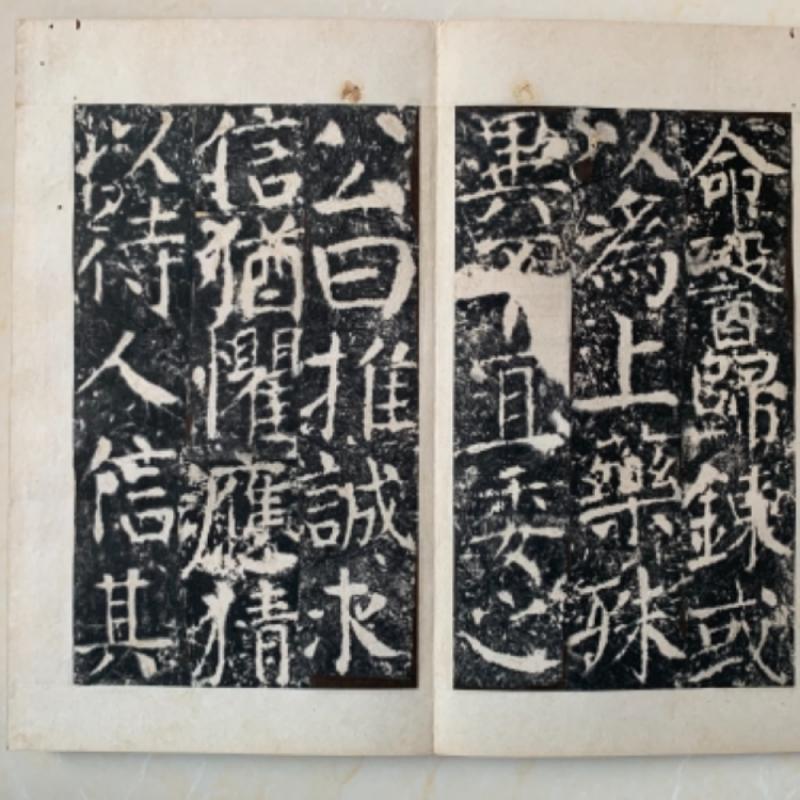 命醙酋歸鍊或
以為上藥殊
異
宜委之
公曰推誠求
信猶懼應猜
以待人信其